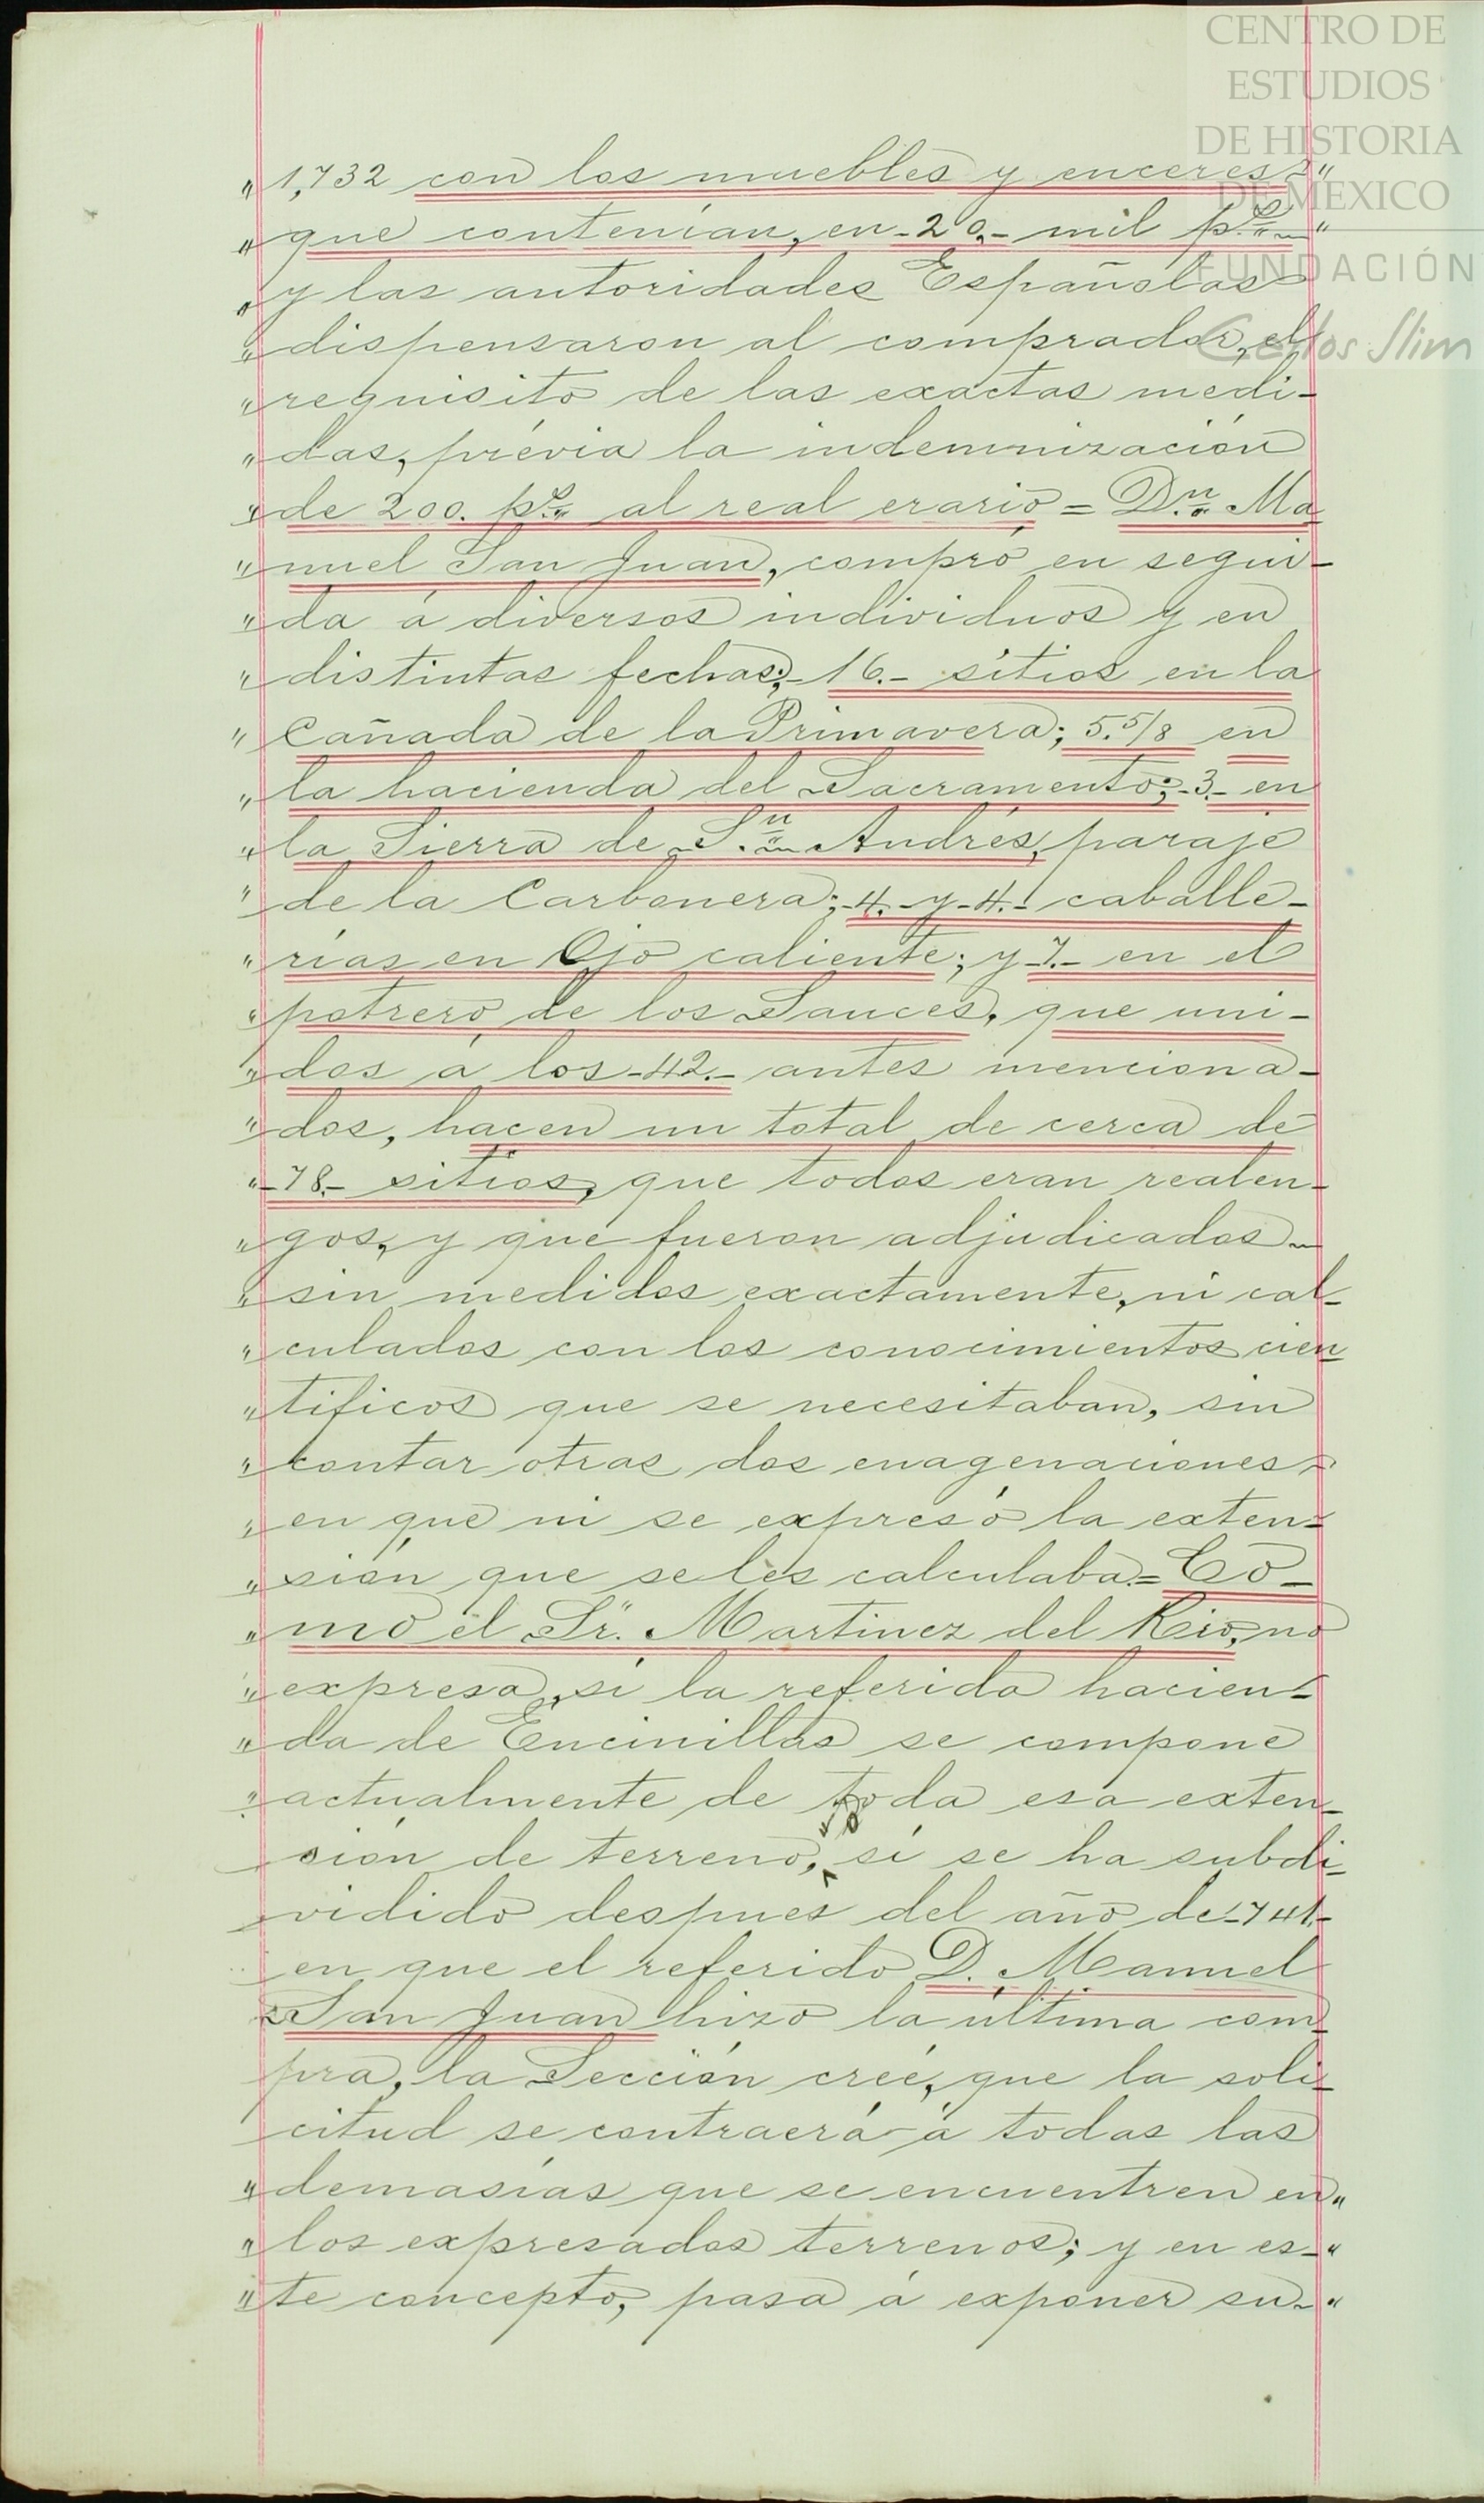 CENTRO DE
ESTUDIOS
DE HISTORIA
DE MÉXICO
FUNDACIÓN
Carlos Slim
„ 1,732 con los muebles y enceres „
„ que contenían, en -20.- mil p.ˢ „
„ y las autoridades Españolas
„ dispensaron al comprador, el
„ requisito de las exactas medi-
„ das, prévia la indemnización
„ de 200. p.ˢ al real erario = D.ⁿ Ma
„ nuel San Juan, compró en segui-
„ da á diversos individuos y en
„ distintas fechas; -16.- sitios en la
„ Cañada de la Primavera; 5.5/8 en
„ la hacienda del Sacramento; -3.- en
„ la Sierra de S.ⁿ Andrés, paraje
„ de la Carbonera; -4.- y -4.- caballe-
„ rías en Ojo caliente; y -7.- en el
„ potrero de los Sauces, que uni-
„ dos á los -42.- antes menciona-
„ dos, hacen un total de cerca de
„ -78.- sitios, que todos eran realen-
„ gos, y que fueron adjudicados
„ sin medidos exactamente, ni cal-
„ culados con los conocimientos cien
„ tificos que se necesitaban, sin
„ contar otras dos enagenaciones
„ en que ni se expresó la exten=
„ sión que se les calculaba.= Co-
„ mo el Sr. Martinez del Rio, no
„ expresa, si la referida hacien=
„ da de Encinillas se compone
„ actualmente de toda esa exten-
sión de terreno, ó si se ha subdi-
vidido despues del año de -741.-
en que el referido D. Manuel
San Juan hizo la última com-
pra, la Sección creé, que la soli-
citud se contraerá á todas las
„ demasías que se encuentren en „
„ los expresados terrenos; y en es- „
„ te concepto, pasa á exponer su- „